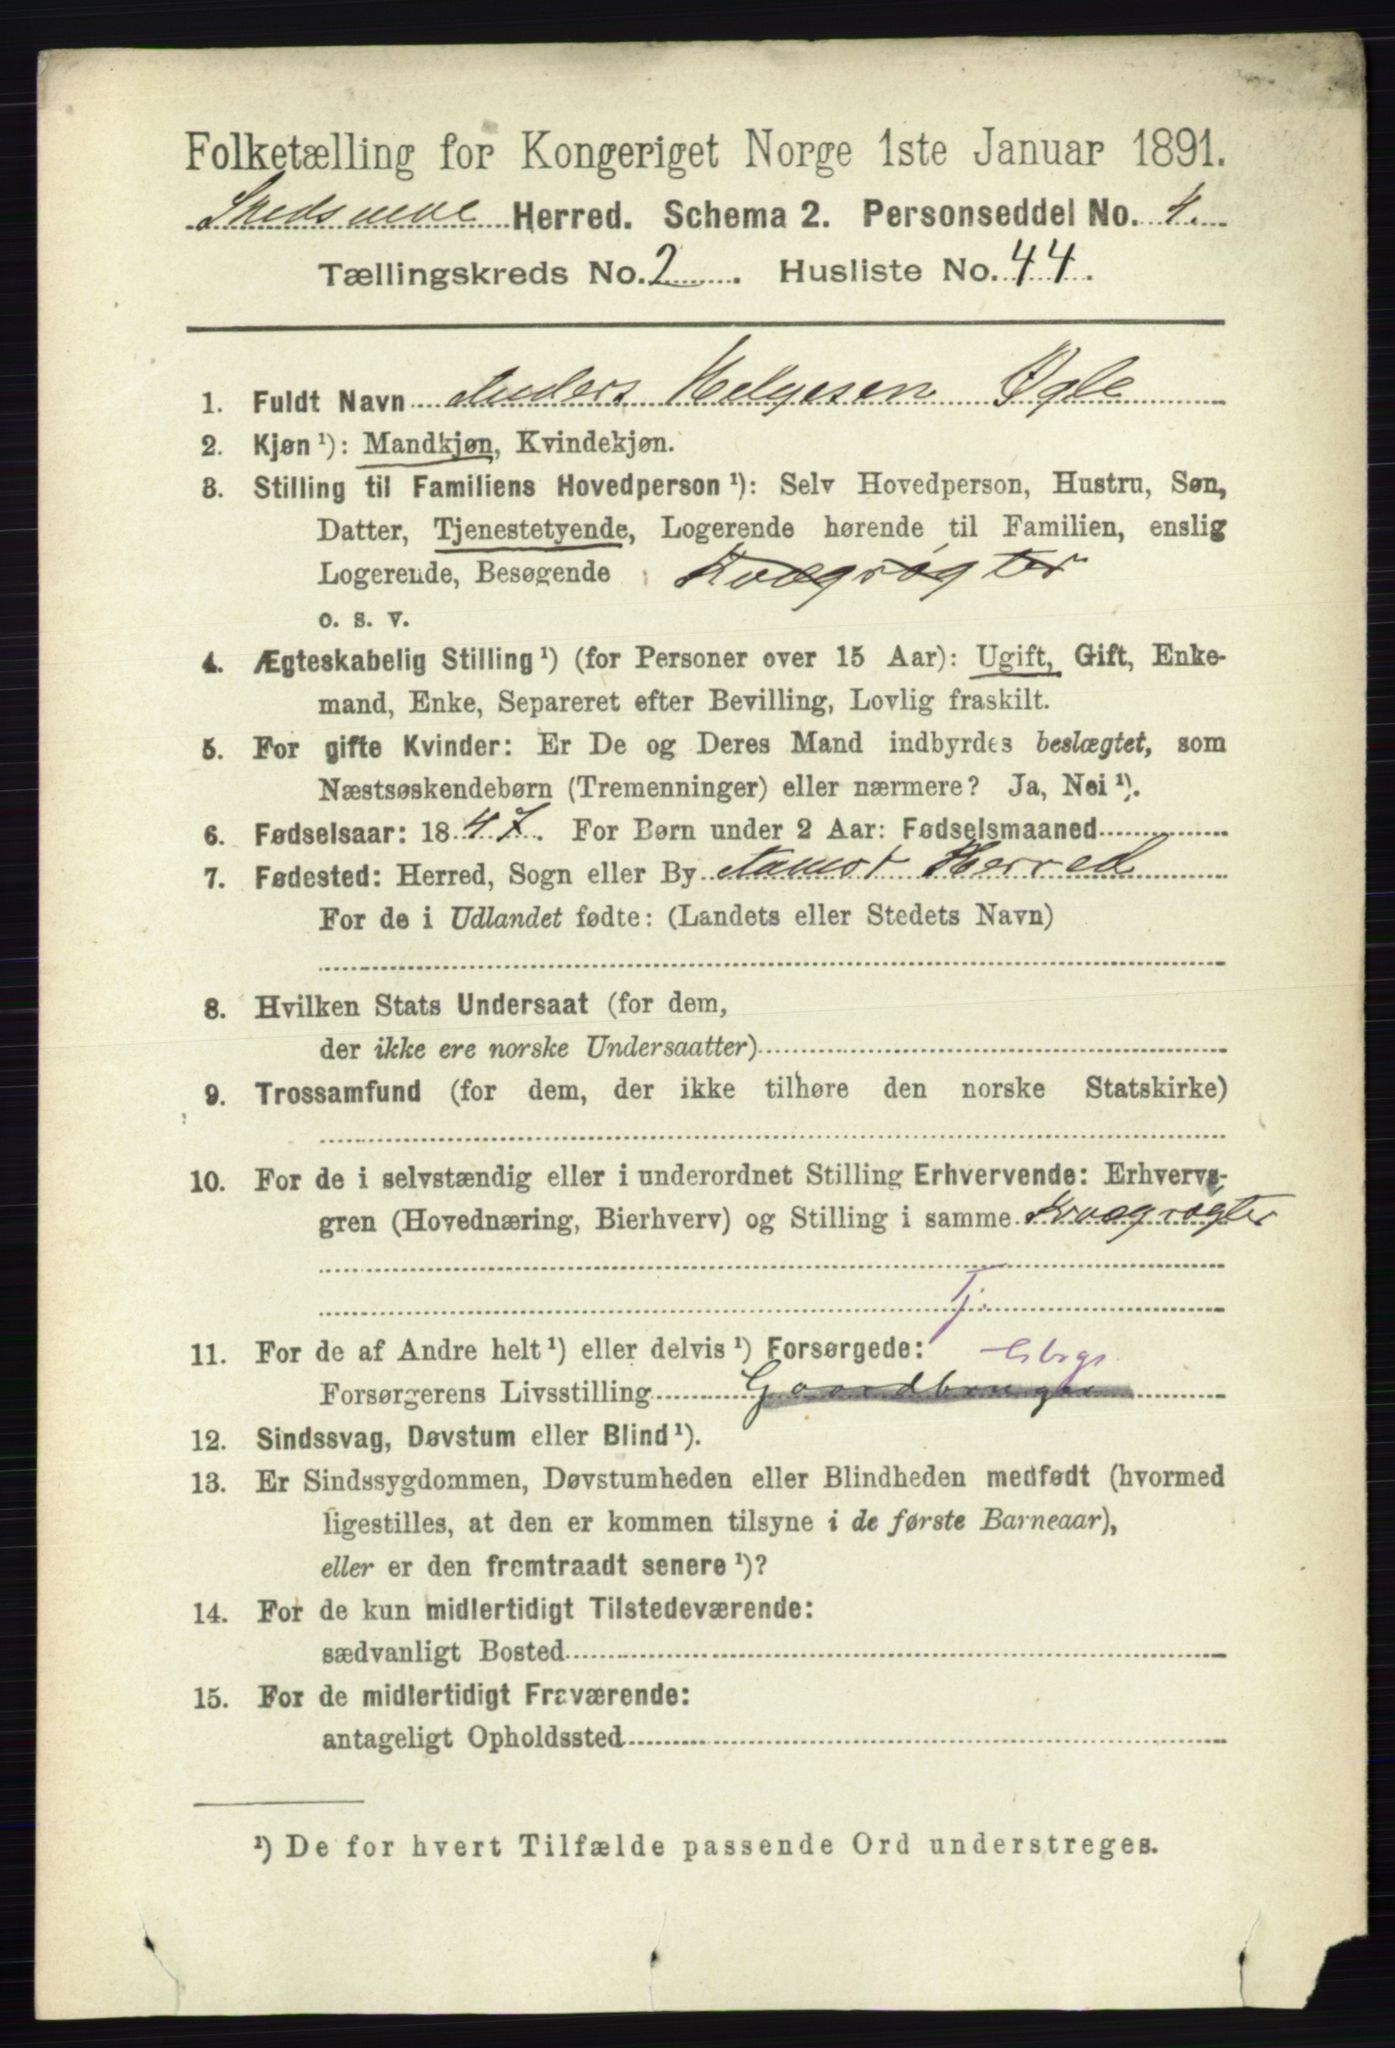 Folketælling for Kongeriget Norge 1ste Januar 1891.
Skedsmoe Herred. Schema 2. Personseddel No. 4.
Tællingskreds No. 2. Husliste No. 44.
1. Fuldt Navn Anders Helgesen Ogle
2. Kjøn ¹): Mandkjøn, Kvindekjøn.
3. Stilling til Familiens Hovedperson ¹): Selv Hovedperson, Hustru, Søn,
Datter, Tjenestetyende, Logerende hørende til Familien, enslig
Logerende, Besøgende Kvægrøgter
o. s. v.
4. Ægteskabelig Stilling ¹) (for Personer over 15 Aar): Ugift, Gift, Enke-
mand, Enke, Separeret efter Bevilling, Lovlig fraskilt.
5. For gifte Kvinder: Er De og Deres Mand indbyrdes beslægtet, som
Næstsøskendebørn (Tremenninger) eller nærmere? Ja, Nei ¹).
6. Fødselsaar: 1847. For Børn under 2 Aar: Fødselsmaaned
7. Fødested: Herred, Sogn eller By Aamot Herred
For de i Udlandet fødte: (Landets eller Stedets Navn)
8. Hvilken Stats Undersaat (for dem,
der ikke ere norske Undersaatter)
9. Trossamfund (for dem, der ikke tilhøre den norske Statskirke)
10. For de i selvstændig eller i underordnet Stilling Erhvervende: Erhvervs-
gren (Hovednæring, Bierhverv) og Stilling i samme Kvægrøgter
Tj.
11. For de af Andre helt ¹) eller delvis ¹) Forsørgede:
Forsørgerens Livsstilling Gaardbruger
12. Sindssvag, Døvstum eller Blind ¹).
13. Er Sindssygdommen, Døvstumheden eller Blindheden medfødt (hvormed
ligestilles, at den er kommen tilsyne i de første Barneaar),
eller er den fremtraadt senere ¹)?
14. For de kun midlertidigt Tilstedeværende:
sædvanligt Bosted
15. For de midlertidigt Fraværende:
antageligt Opholdssted
¹) De for hvert Tilfælde passende Ord understreges.